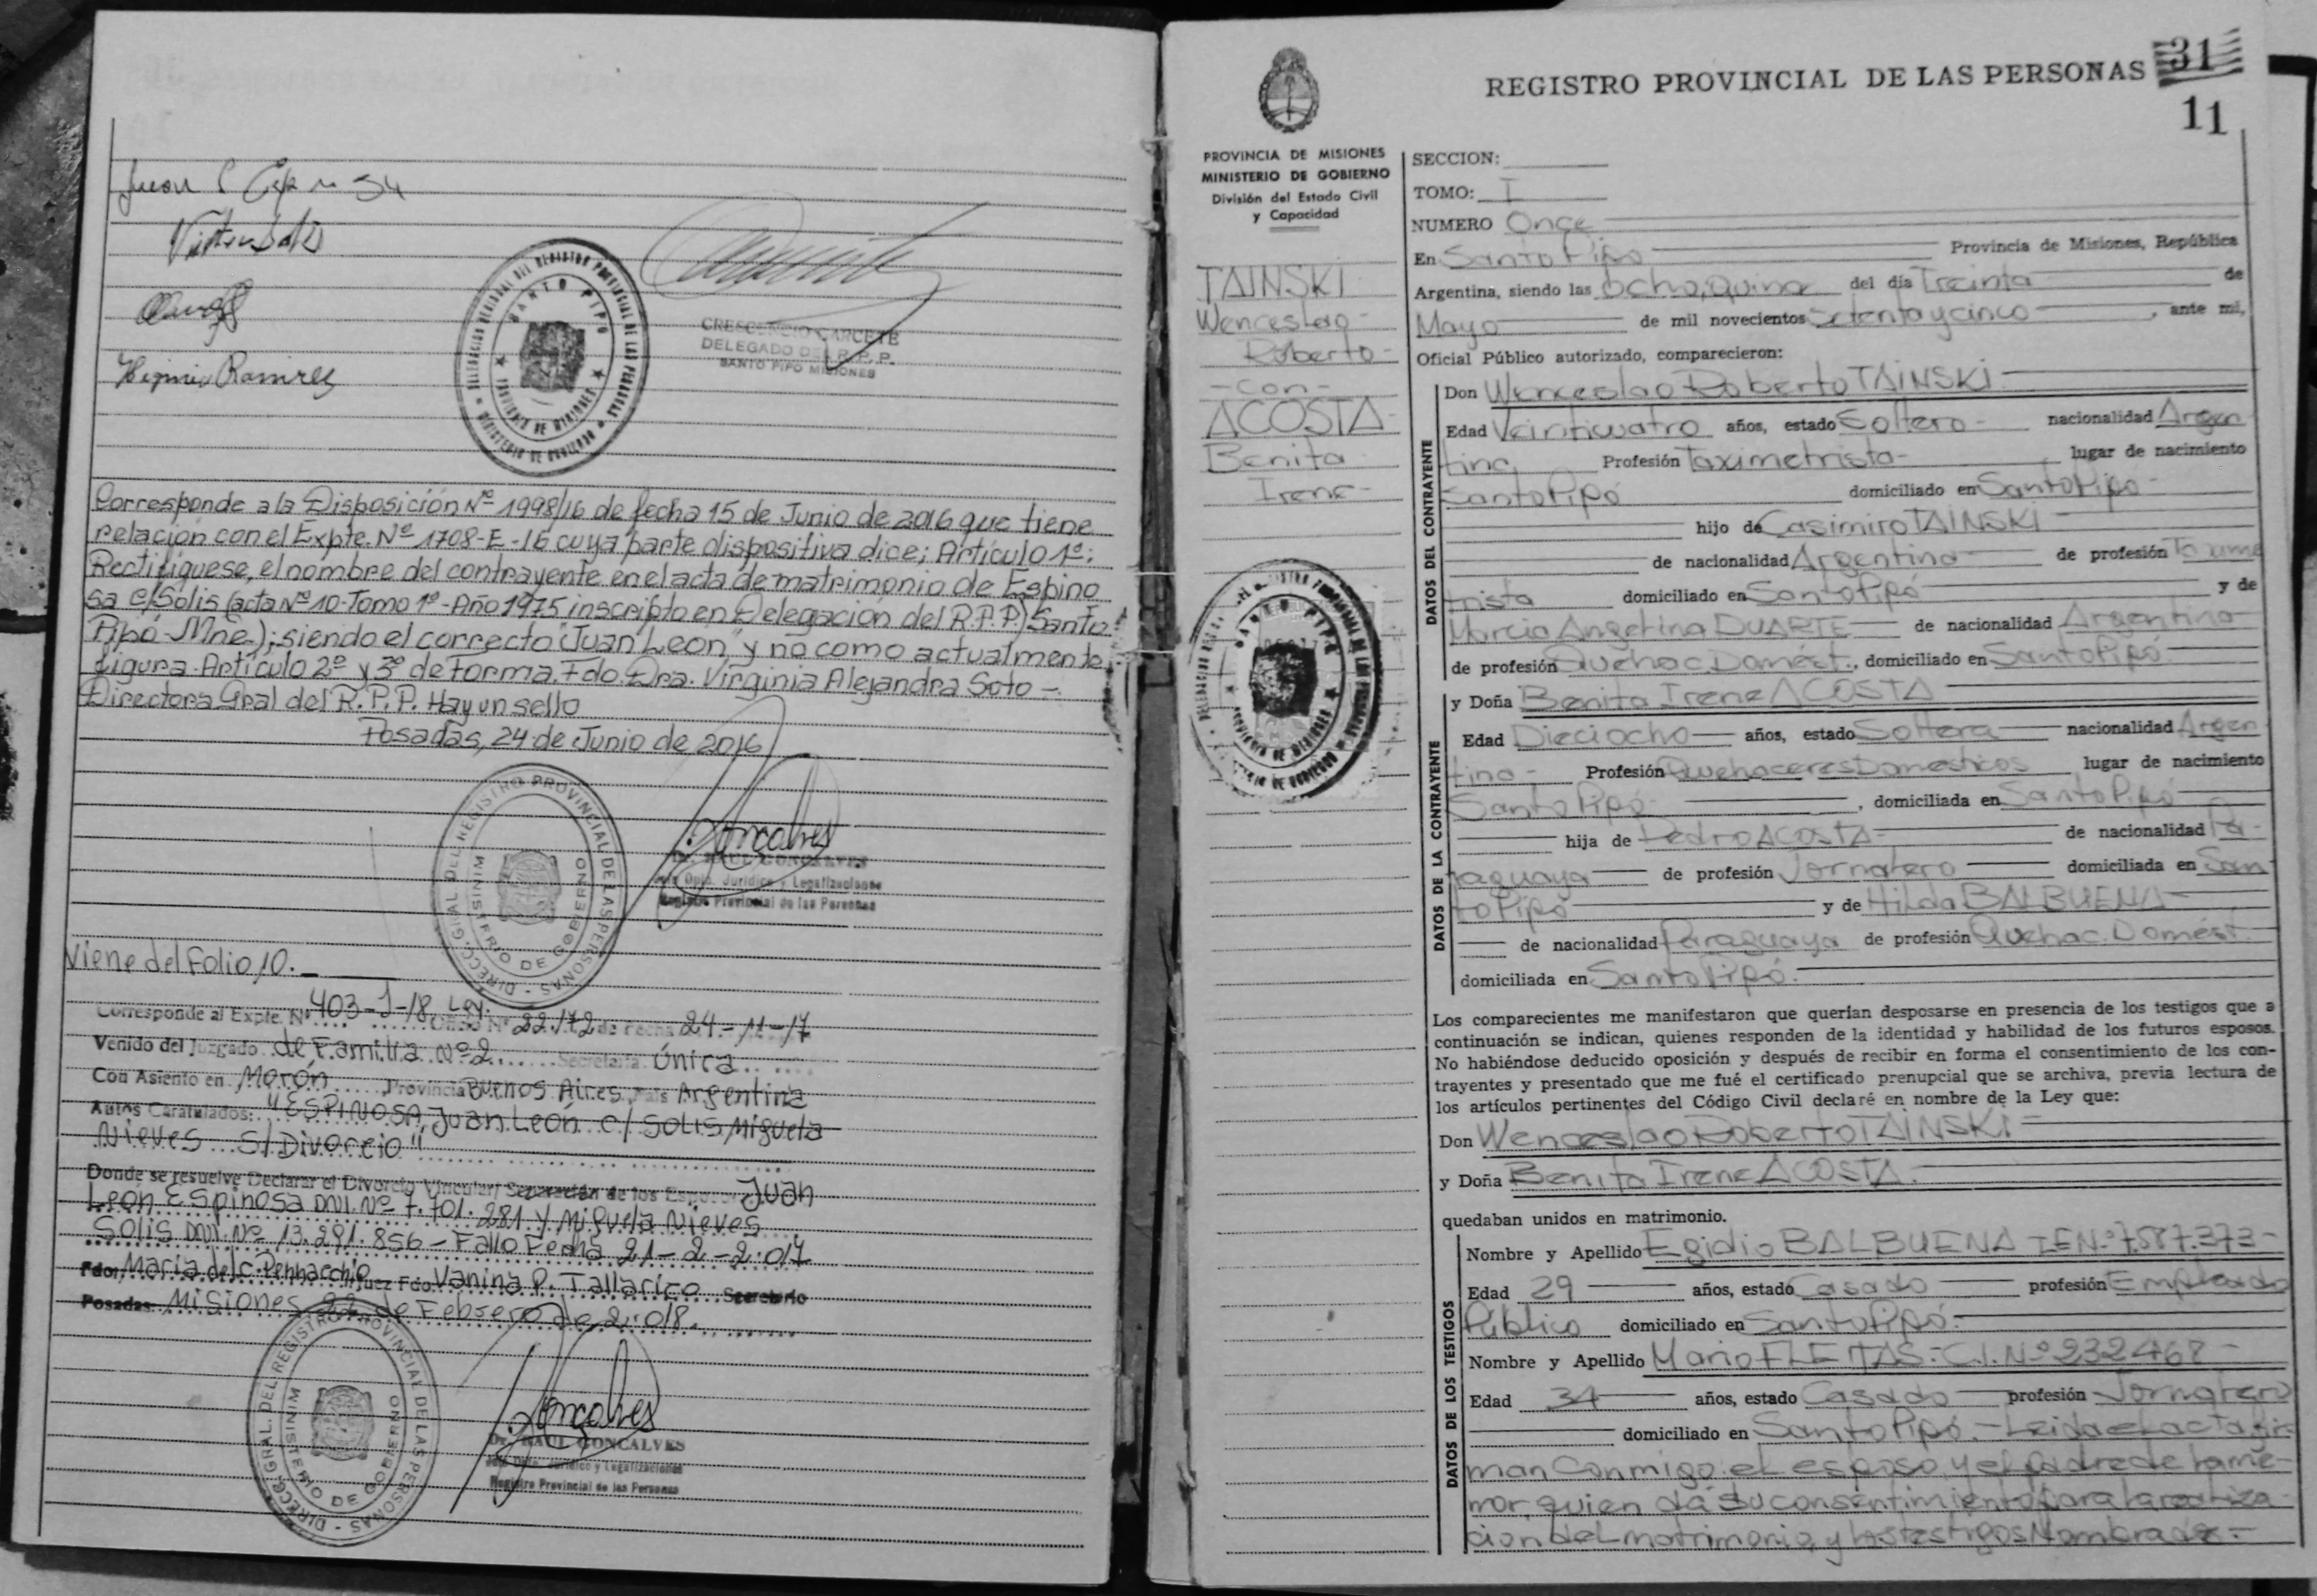 Juan
Higinio Ramirez
DELEGACION REGIONAL DEL REGISTRO PROVINCIAL DE LAS PERSONAS
SANTO PIPO
PROVINCIA DE MISIONES
MINISTERIO DE GOBIERNO
CRESCENCIO GARCETE
DELEGADO DEL R. P. P.
SANTO PIPO MISIONES
Corresponde a la Disposición Nº 1998/16 de fecha 15 de Junio de 2016 que tiene
relación con el Expte. Nº 1708-E-16 cuya parte dispositiva dice; Artículo 1º:
Rectifiquese, el nombre del contrayente en el acta de matrimonio de Espino
sa c/ Solis (acta Nº 10-Tomo 1º-Año 1975 inscripto en Delegación del R.P.P.) Santo
Pipó-Mnes.); siendo el correcto "Juan Leon" y no como actualmente
figura. Artículo 2º y 3º de forma. Fdo. Dra. Virginia Alejandra Soto -
Directora Gral del R.P.P. Hay un sello
Posadas, 24 de Junio de 2016
DIRECC. GRAL. DEL REGISTRO PROVINCIAL DE LAS PERSONAS
MINISTERIO DE GOBIERNO
Dr. RAUL GONCALVES
Jefe Dpto. Jurídico y Legalizaciones
Registro Provincial de las Personas
Viene del Folio 10.-
Corresponde al Expte. Nº 403-J-18, Ley. 22.172 de Fecha 24-11-17
Venido del Juzgado de Familia Nº 2 Secretaría Única
Con Asiento en Morón Provincia Buenos Aires País Argentina
Autos Caratulados: "ESPINOSA, Juan León c/ SOLIS Miguela
Nieves S/ Divorcio"
Donde se resuelve Declarar el Divorcio Vincular/ Separación de los Esposos Juan
León Espinosa DNI. Nº 7.701.281 y Miguela Nieves
Solis DNI. Nº 13.291.856 - Fallo Fecha 21-2-2.017
Fdo: Maria del C. Pennacchio Juez Fdo. Vanina P. Tallarico Secretario
Posadas: Misiones 22 de Febrero de 2.018.
DIRECC. GRAL. DEL REGISTRO PROVINCIAL DE LAS PERSONAS
MINISTERIO DE GOBIERNO
Dr. RAUL GONCALVES
Jefe Dpto. Jurídico y Legalizaciones
Registro Provincial de las Personas
REGISTRO PROVINCIAL DE LAS PERSONAS 31
11
PROVINCIA DE MISIONES
MINISTERIO DE GOBIERNO
División del Estado Civil
y Capacidad
TAINSKI
Wenceslao
Roberto-
-con-
ACOSTA-
Benita
Irene-
SANTO PIPO
SECCION:
TOMO: I
NUMERO Once
En Santo Pipo Provincia de Misiones, República
Argentina, siendo las ocho, quince del día Treinta de
Mayo de mil novecientos Setenta y cinco, ante mi,
Oficial Público autorizado, comparecieron:
DATOS DEL CONTRAYENTE
Don Wenceslao Roberto TAINSKI
Edad Veinticuatro años, estado Soltero- nacionalidad Argen
tina Profesión Taximetrista- lugar de nacimiento
Santo Pipó domiciliado en Santo Pipo-
hijo de Casimiro TAINSKI
de nacionalidad Argentina de profesión Taxime
trista domiciliado en Santo Pipó y de
Marcia Angelina DUARTE de nacionalidad Argentina
de profesión Quehac. Domést., domiciliado en Santo Pipó
DATOS DE LA CONTRAYENTE
y Doña Benita Irene ACOSTA
Edad Dieciocho años, estado Soltera nacionalidad Argen
tina- Profesión Quehaceres Domesticos lugar de nacimiento
Santo Pipó, domiciliada en Santo Pipó
hija de Pedro ACOSTA- de nacionalidad Pa-
raguaya de profesión Jornalero domiciliada en San
to Pipó y de Hilda BALBUENA
de nacionalidad Paraguaya de profesión Quehac. Domést.
domiciliada en Santo Pipó.
Los comparecientes me manifestaron que querían desposarse en presencia de los testigos que a
continuación se indican, quienes responden de la identidad y habilidad de los futuros esposos.
No habiéndose deducido oposición y después de recibir en forma el consentimiento de los con-
trayentes y presentado que me fué el certificado prenupcial que se archiva, previa lectura de
los artículos pertinentes del Código Civil declaré en nombre de la Ley que:
Don Wenceslao Roberto TAINSKI
y Doña Benita Irene ACOSTA.
quedaban unidos en matrimonio.
DATOS DE LOS TESTIGOS
Nombre y Apellido Egidio BALBUENA I.E Nº 7.587.373-
Edad 29 años, estado Casado profesión Empleado
Público domiciliado en Santo Pipó.
Nombre y Apellido Mario FLEITAS.- C.I. Nº 232468-
Edad 34 años, estado Casado profesión Jornalero
domiciliado en Santo Pipó.- Leida el acta fir-
man conmigo: el esposo y el padre de la me-
nor, quien dá su consentimiento para la realiza-
cion del matrimonio, y los testigos Nombrados.-